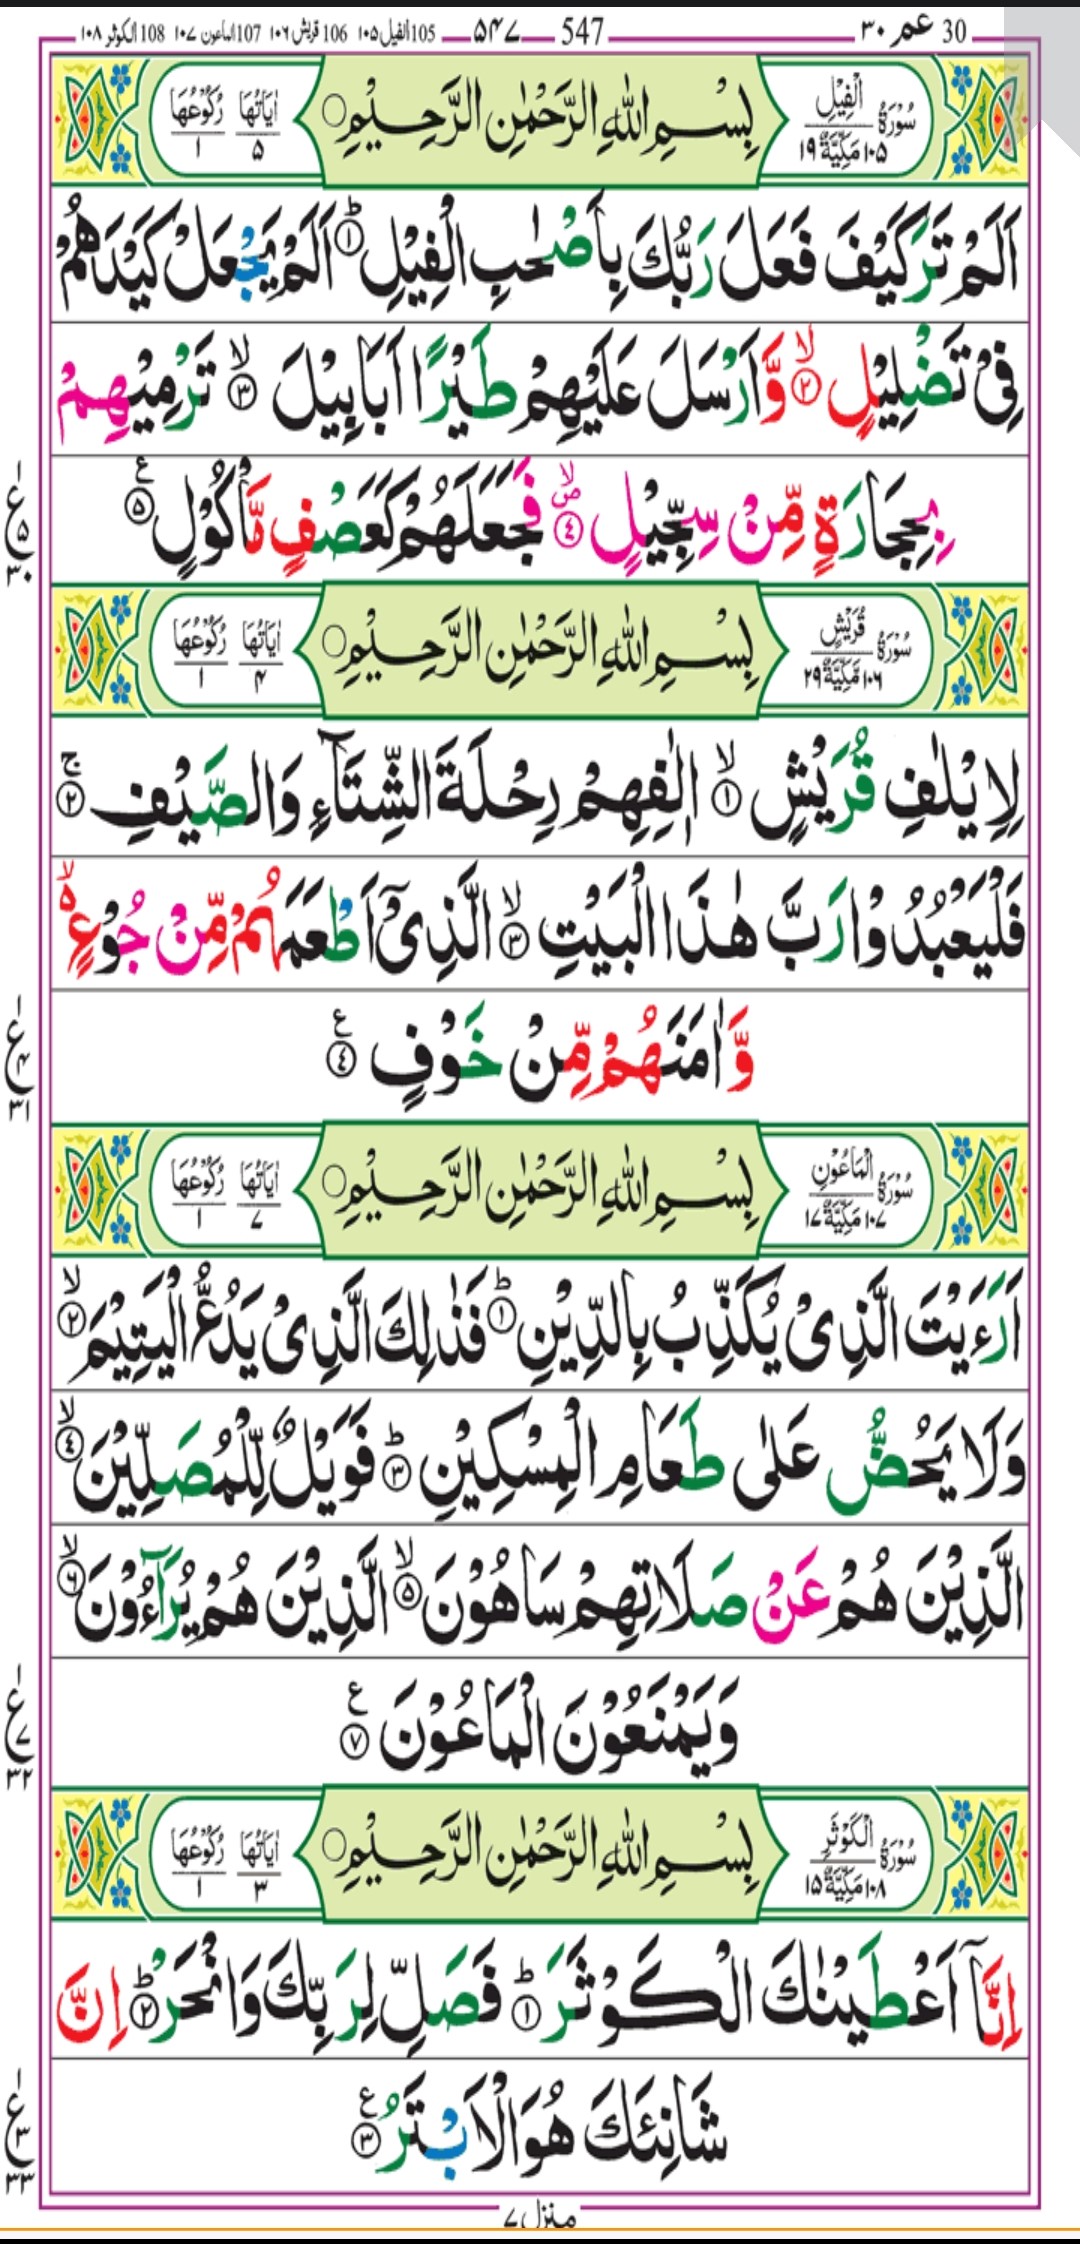 30 عم ۳۰ 547 ۵۴۷ 105 الفيل ۱۰۵ 106 قريش ۱۰۶ 107 الماعون ۱۰۷ 108 الكوثر ۱۰۸
سُوْرَةُ الْفِيْلِ ۱۰۵ مَكِّيَّةٌ ۱۹ بِسْمِ اللهِ الرَّحْمٰنِ الرَّحِيْمِ اٰيَاتُهَا ۵ رُكُوْعُهَا ۱
اَلَمْ تَرَ كَيْفَ فَعَلَ رَبُّكَ بِاَصْحٰبِ الْفِيْلِ ؕ ۱ اَلَمْ يَجْعَلْ كَيْدَهُمْ
فِيْ تَضْلِيْلٍ ۙ ۲ وَّاَرْسَلَ عَلَيْهِمْ طَيْرًا اَبَابِيْلَ ۙ ۳ تَرْمِيْهِمْ
بِحِجَارَةٍ مِّنْ سِجِّيْلٍ ۙ ص ۴ فَجَعَلَهُمْ كَعَصْفٍ مَّاْكُوْلٍ ع ۵
ع ۱ ۵ ۳۰
سُوْرَةُ قُرَيْشٍ ۱۰۶ مَكِّيَّةٌ ۲۹ بِسْمِ اللهِ الرَّحْمٰنِ الرَّحِيْمِ اٰيَاتُهَا ۴ رُكُوْعُهَا ۱
لِاِيْلٰفِ قُرَيْشٍ ۙ ۱ اٖلٰفِهِمْ رِحْلَةَ الشِّتَآءِ وَالصَّيْفِ ۚ ۲
فَلْيَعْبُدُوْا رَبَّ هٰذَا الْبَيْتِ ۙ ۳ الَّذِيْٓ اَطْعَمَهُمْ مِّنْ جُوْعٍ ۙ ه
وَّاٰمَنَهُمْ مِّنْ خَوْفٍ ع ۴
ع ۱ ۴ ۳۱
سُوْرَةُ الْمَاعُوْنِ ۱۰۷ مَكِّيَّةٌ ۱۷ بِسْمِ اللهِ الرَّحْمٰنِ الرَّحِيْمِ اٰيَاتُهَا ۷ رُكُوْعُهَا ۱
اَرَءَيْتَ الَّذِيْ يُكَذِّبُ بِالدِّيْنِ ؕ ۱ فَذٰلِكَ الَّذِيْ يَدُعُّ الْيَتِيْمَ ۙ ۲
وَلَا يَحُضُّ عَلٰى طَعَامِ الْمِسْكِيْنِ ؕ ۳ فَوَيْلٌ لِّلْمُصَلِّيْنَ ۙ ۴
الَّذِيْنَ هُمْ عَنْ صَلَاتِهِمْ سَاهُوْنَ ۙ ۵ الَّذِيْنَ هُمْ يُرَآءُوْنَ ۙ ۶
وَيَمْنَعُوْنَ الْمَاعُوْنَ ع ۷
ع ۱ ۷ ۳۲
سُوْرَةُ الْكَوْثَرِ ۱۰۸ مَكِّيَّةٌ ۱۵ بِسْمِ اللهِ الرَّحْمٰنِ الرَّحِيْمِ اٰيَاتُهَا ۳ رُكُوْعُهَا ۱
اِنَّآ اَعْطَيْنٰكَ الْكَوْثَرَ ؕ ۱ فَصَلِّ لِرَبِّكَ وَانْحَرْ ؕ ۲ اِنَّ
شَانِئَكَ هُوَ الْاَبْتَرُ ع ۳
ع ۱ ۳ ۳۳
منزل ۷